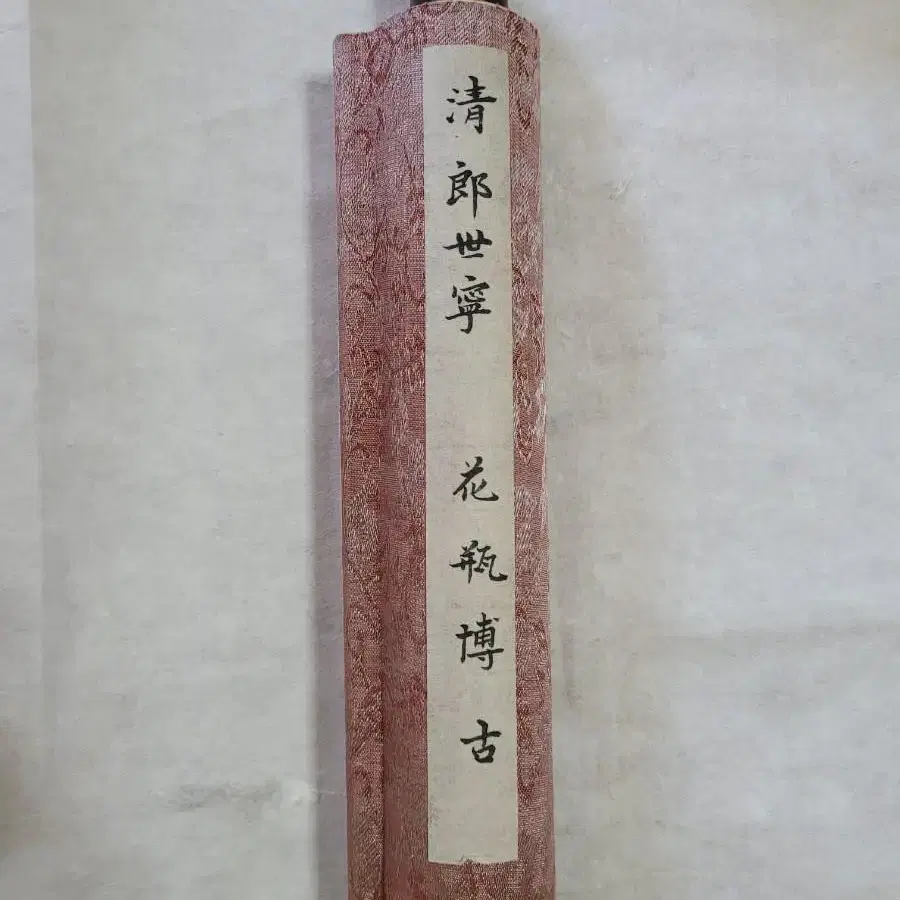 清 郎世寧 花瓶博古